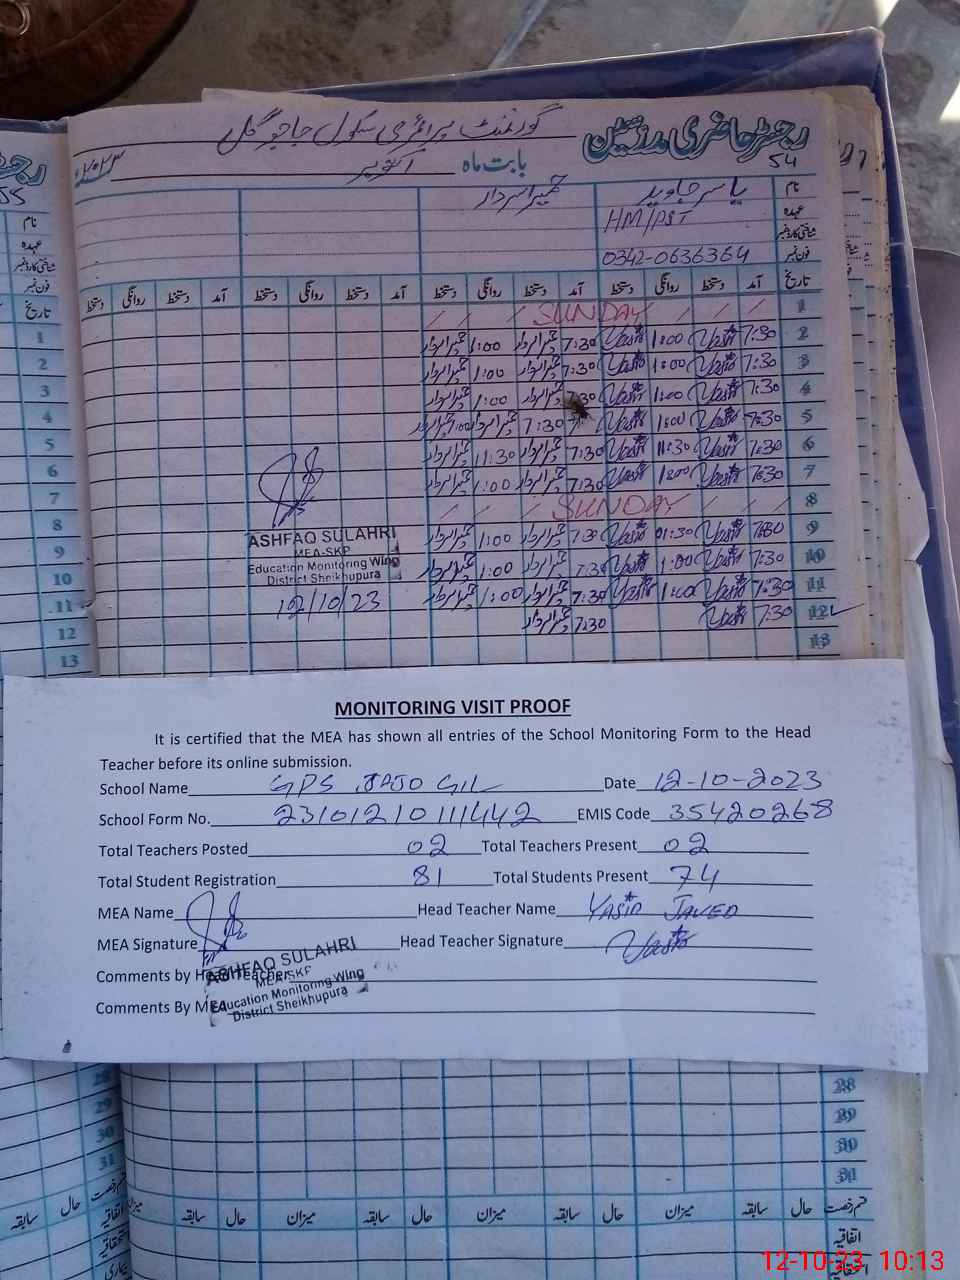 گورنمنٹ پرائمری سکول جاجوگل
رجسٹر حاضری مدرسین
54
بابت ماہ اکتوبر
نام یاسر جاوید حمیرا سردار
عہدہ HM/PST
شناختی کارڈ نمبر
فون نمبر 0342-0636364
تاریخ آمد دستخط روانگی دستخط آمد دستخط روانگی دستخط آمد دستخط روانگی دستخط آمد دستخط روانگی دستخط
1 SUNDAY
2 7:30 Yasir 1:00 Yasir 7:30 حمیرا سردار 1:00 حمیرا سردار
3 7:30 Yasir 1:00 Yasir 7:30 حمیرا سردار 1:00 حمیرا سردار
4 7:30 Yasir 1:00 Yasir 7:30 حمیرا سردار 1:00 حمیرا سردار
5 7:30 Yasir 1:00 Yasir 7:30 حمیرا سردار 1:00 حمیرا سردار
6 7:30 Yasir 11:30 Yasir 7:30 حمیرا سردار 11:30 حمیرا سردار
7 7:30 Yasir 1:00 Yasir 7:30 حمیرا سردار 1:00 حمیرا سردار
8 SUNDAY
9 7:30 Yasir 01:30 Yasir 7:30 حمیرا سردار 1:00 حمیرا سردار
10 7:30 Yasir 1:00 Yasir 7:30 حمیرا سردار 1:00 حمیرا سردار
11 7:30 Yasir 1:00 Yasir 7:30 حمیرا سردار 1:00 حمیرا سردار
12 7:30 Yasir 7:30 حمیرا سردار
13
ASHFAQ SULAHRI
MEA-SKP
Education Monitoring Wing
District Sheikhupura
12/10/23
MONITORING VISIT PROOF
It is certified that the MEA has shown all entries of the School Monitoring Form to the Head
Teacher before its online submission.
School Name GPS JAJO GIL Date 12-10-2023
School Form No. 23101210111442 EMIS Code 35420268
Total Teachers Posted 02 Total Teachers Present 02
Total Student Registration 81 Total Students Present 74
MEA Name Head Teacher Name YASIR JAVED
MEA Signature Head Teacher Signature Yasir
Comments by Head Teacher
Comments By MEA
ASHFAQ SULAHRI
MEA-SKP
Education Monitoring Wing
District Sheikhupura
28
29
30
31
قسم رخصت حال سابقہ میزان حال سابقہ میزان حال سابقہ میزان حال سابقہ میزان
اتفاقیہ
استحقاقیہ
55
نام
عہدہ
شناختی کارڈ نمبر
فون نمبر
تاریخ
1
2
3
4
5
6
7
8
9
10
11
12
13
28
29
30
31
قسم رخصت حال سابقہ
اتفاقیہ
استحقاقیہ
بیماری
12-10-23 10:13